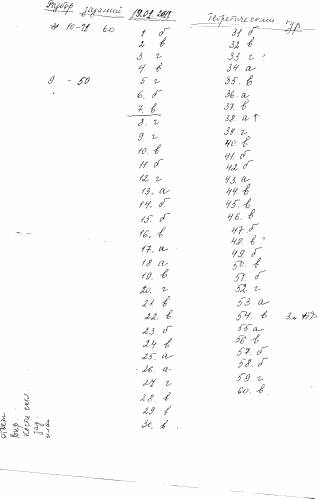 Разбор заданий 19.02.2017 Теоретический тур
10-11 60
9 - 50
1 б
2 в
3. г
4. в
5 г
6. б
7. в
8. г
9. г
10. в
11 б
12. г
13. а
14. б
15. б
16. в
17. а
18 а
19. в
20. г
21. в
22. в
23 б
24 в
25. а
26. а
27 г
28. в
29 в
30. в
31 б
32. в
33 г ?
34. а
35. в
36. а
37. в
38. а
39. г
40. в
41. б
42. б
43. а
44. в
45. в
46. в
47 б
48. в ?
49. б
50. в
51. б
52. г
53 а
54. в
55 а
56 в
57. б
58. б
59. г
60. в